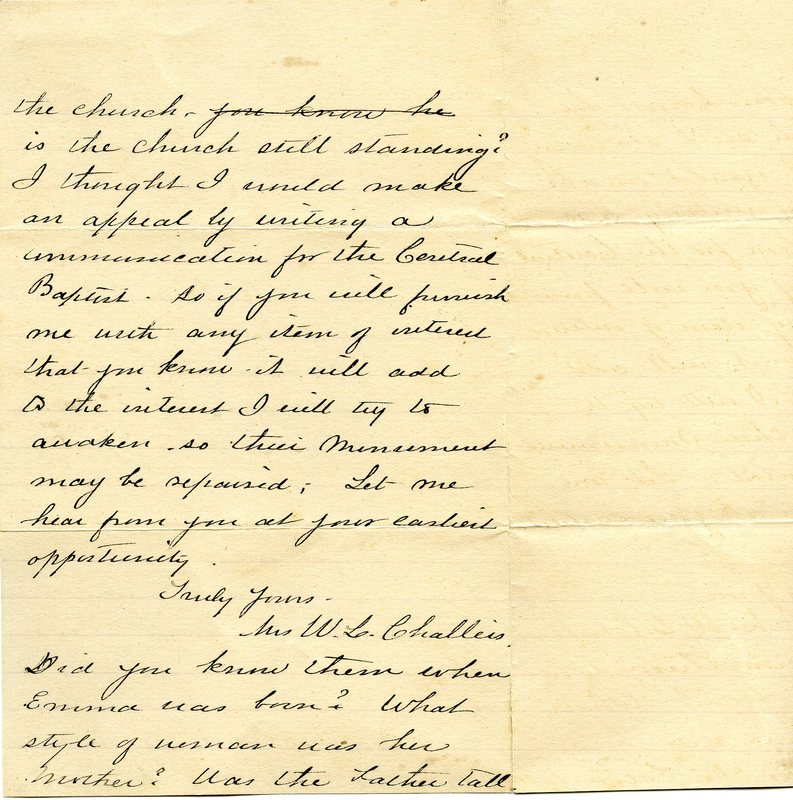 the church - you know he
is the church still standing?
I thought I would make
an appeal by writing a
communication for the Central
Baptist. So if you will furnish
me with any item of interest
that you know - it will add
to the interest I will try to
awaken - so their Monument
may be repaired; Let me
hear from you at your earliest
opportunity.
Truly Yours -
Mrs W. L. Challiss.
Did you know them when
Emma was born? What
style of woman was her
Mother? Was the Father tall